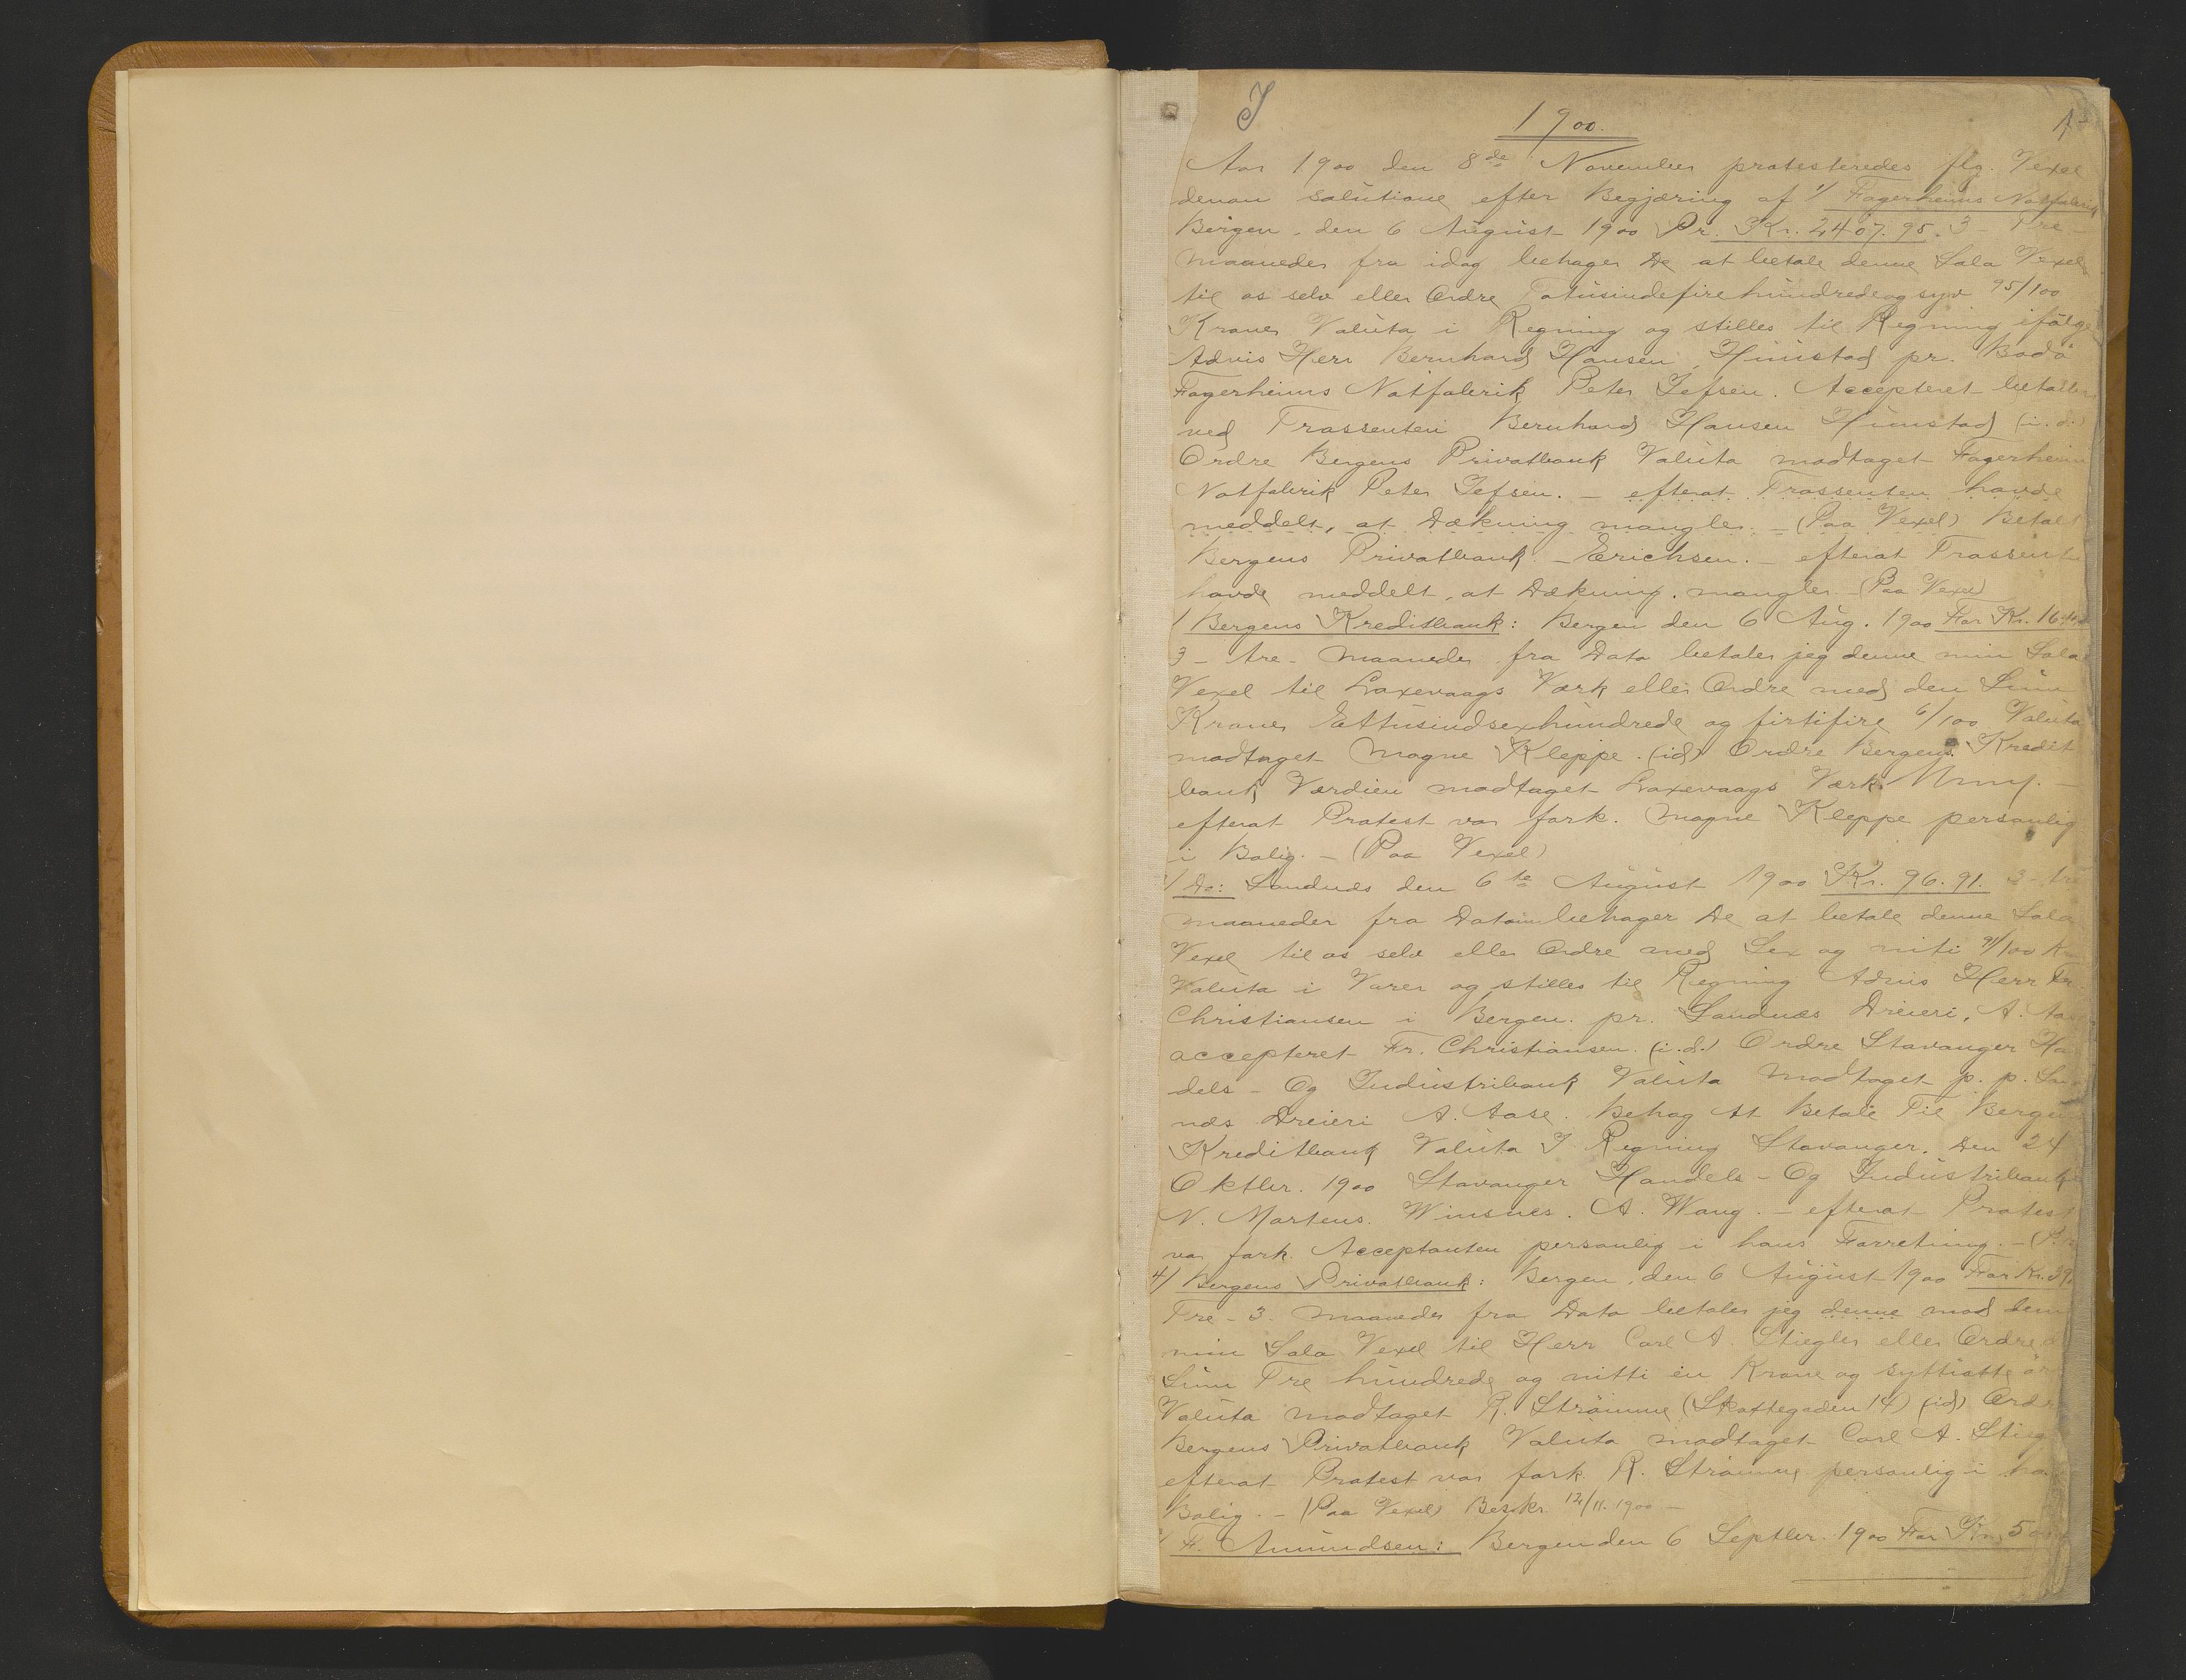 I
1900.
1
Aar 1900 den 8de November protesteredes flg. Vexel
denon solutione efter Begjæring af 1/ Fagerheims Notfabrik
Bergen, den 6 August 1900 Pr. Kr. 2407.95. 3 - Tre -
Maaneder fra idag behager De at betale denne Sola Vexel
til os selv eller Ordre Totusindefirehundredeogsyv 95/100
Kroner Valuta i Regning og stilles til Regning ifølge
Advis Herr Bernhard Hansen, Hunstad pr. Bodø
Fagerheims Notfabrik Peter Jefsen. Accepteret betales
ved Trassenten Bernhard Hansen Hunstad (i.d.)
Ordre Bergens Privatbank Valuta modtaget Fagerheim
Notfabrik Peter Jefsen. - efterat Trassenten havde
meddelt, at Dækning mangler. - (Paa Vexel) Betal
Bergens Privatbank - Erichsen. - efterat Trassent
havde meddelt, at Dækning. mangler. (Paa Vexel)
/ Bergens Kreditbank: Bergen den 6 Aug. 1900 For Kr. 1644
3 - tre - Maaneder fra Dato betaler jeg denne min Sola
Vexel til Laxevaags Værk eller Ordre med den Sum
Kroner Ettusindsexhundrede og firtifire 6/100 Valuta
modtaget Magne Kleppe. (id) Ordre Bergens Kredit
bank Værdien modtaget Laxevaags Værk
efterat Protest var fork. Magne Kleppe personlig
i Bolig. - (Paa Vexel)
/ Do: Sandnæs den 6te August 1900 Kr. 96.91. 3 - tre
maaneder fra Datoum behager De at betale denne Sola
Vexel til os selv eller Ordre med Sex og niti 91/100 Kr
Valuta i Varer og stilles til Regning Advis Herr Fr.
Christiansen i Bergen. pr. Sandnæs Dreieri, A. Aase
accepteret Fr. Christiansen. (i.d.) Ordre Stavanger Ha
dels - Og Industribank Valuta Modtaget p. p. San
næs Dreieri A. Aase. Behag At Betale Til Bergen
Kreditbank Valuta I Regning Stavanger. Den 24
Oktbr. 1900 Stavanger Handels - Og Industribank
N. Martens. Winsnes. A. Wang. - efterat Protest
var fork. Acceptanten personlig i hans Forretning. - (P.
4/ Bergens Privatbank: Bergen, den 6 August 1900 For Kr. 39
Tre - 3. Maaneder fra Dato betaler jeg denne mod den
min Sola Vexel til Herr Carl A. Stiegler eller Ordre
Sum Tre hundrede og nitti en Krone og syttiotte ør
Valuta modtaget R. Strømme (Skottegaden 14) (id) Ord
Bergens Privatbank Valuta modtaget Carl A. Stieg
efterat Protest var fork. R. Strømme personlig i ha
Bolig. - (Paa Vexel) Beskr. 12/11. 1900 -
/ F. Amundsen: Bergen den 6 Septbr. 1900 For Kr. 50